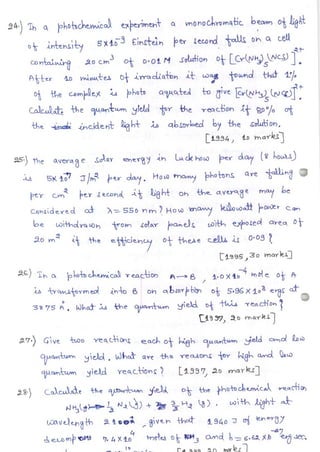 24.) In a photochemical experiment a monochromatic beam of light
of intensity 5×10⁻³ Einstein per second falls on a cell
containing 20 cm³ of 0.01 M solution of [Cr(NH₃)₅(NCS)]²⁺.
After 10 minutes of irradiation it was found that 1%
of the complex is photo aquated to give [Cr(NH₃)₅(H₂O)]³⁺.
Calculate the quantum yield for the reaction if 50% of
the incident light is absorbed by the solution.
[1994, 10 marks]
25.) The average solar energy in Lucknow per day (8 hours)
is 5×10⁷ J/m² per day. How many photons are falling
per cm² per second if light on the average may be
considered at λ= 550 nm? How many kilowatt power can
be withdrawn from solar panels with exposed area of
20 m² if the efficiency of these cells is 0.09?
[1995, 30 marks]
26.) In a photochemical reaction A → B, 1.0×10⁻⁴ mole of A
is transformed into B on absorption of 5.96×10⁷ ergs at
3875 A°. What is the quantum yield of this reaction?
[1997, 20 marks]
27.) Give two reactions each of high quantum yield and low
quantum yield. What are the reasons for high and low
quantum yield reactions? [1997, 20 marks]
28) Calculate the quantum yield of the photochemical reaction
NH₃(g) → ½ N₂(g) + 3/2 H₂(g). with light at
wavelength, given that 1940 J of energy
decompose 9.4×10⁴ moles of NH₃ and h = 6.62×10⁻²⁷ erg sec.